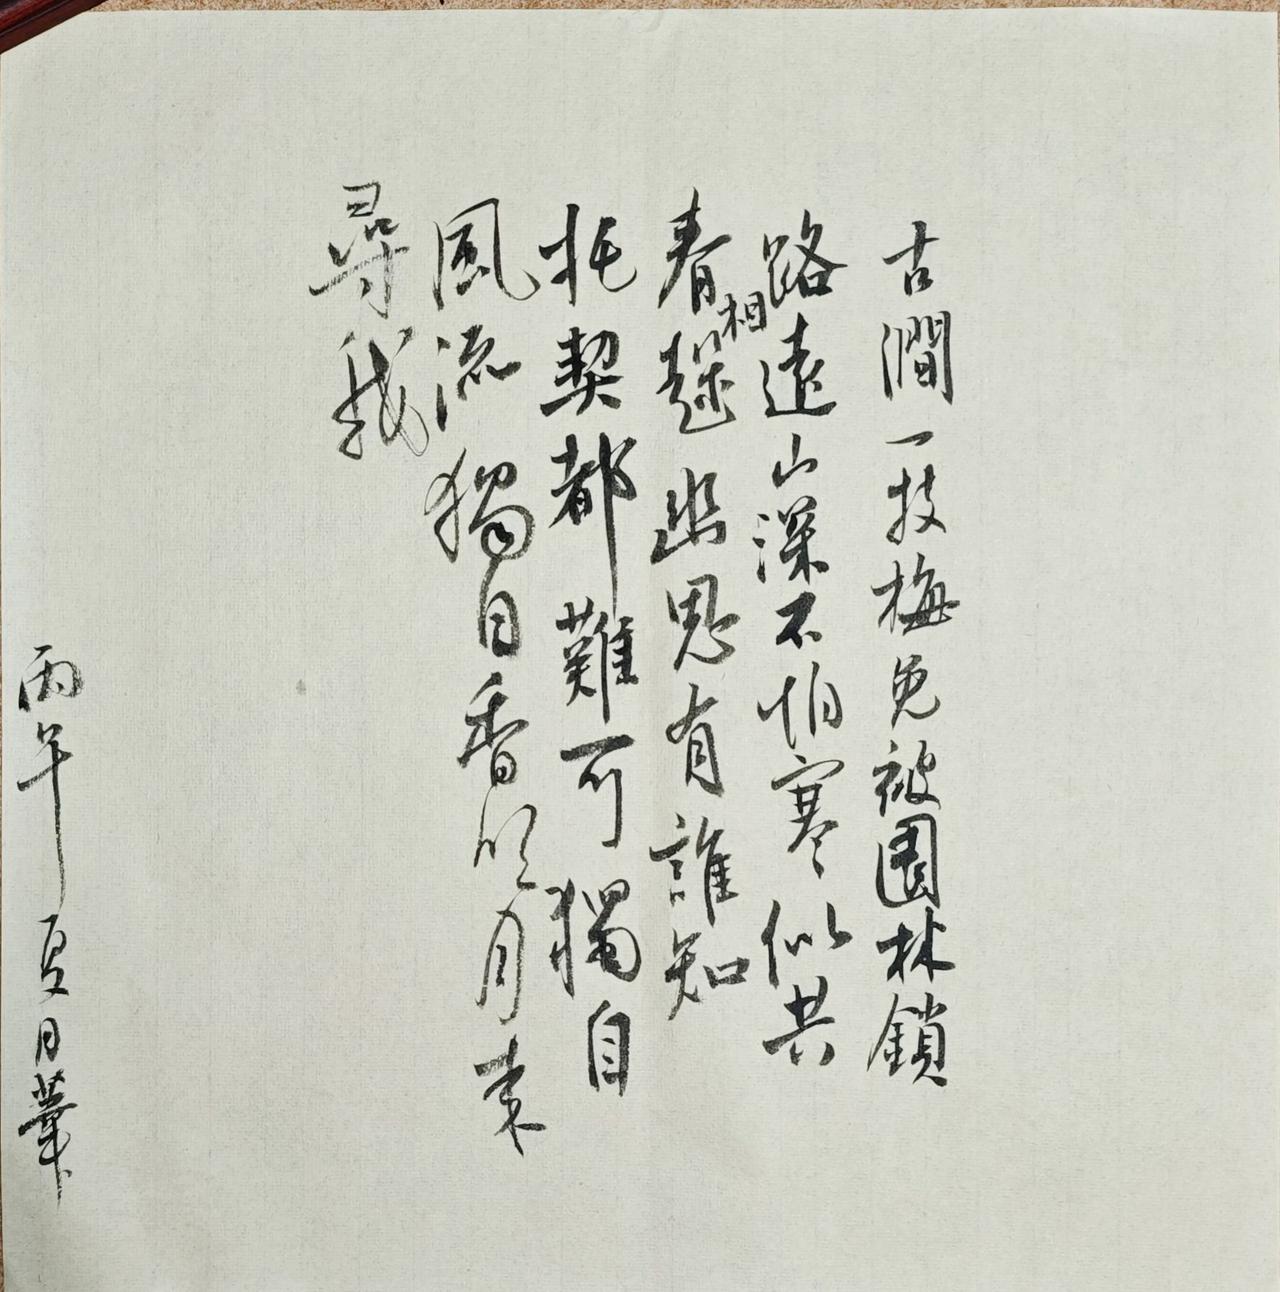 古澗一枝梅免被園林鎖
路遠山深不怕寒似共
春相趓幽思有誰知
托契都難可獨自
風流獨自香明月来
尋我
丙午夏日華